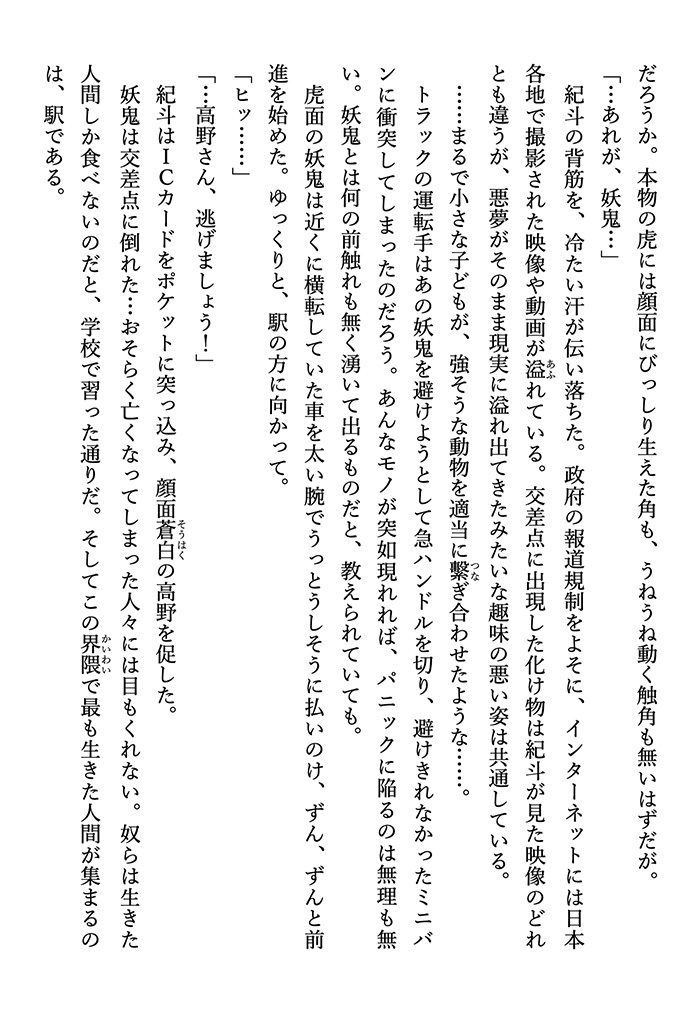 だろうか。本物の虎には顔面にびっしり生えた角も、うねうね動く触角も無いはずだが。
「…あれが、妖鬼…」
　紀斗の背筋を、冷たい汗が伝い落ちた。政府の報道規制をよそに、インターネットには日本
各地で撮影された映像や動画が溢れている。交差点に出現した化け物は紀斗が見た映像のどれ
とも違うが、悪夢がそのまま現実に溢れ出てきたみたいな趣味の悪い姿は共通している。
　……まるで小さな子どもが、強そうな動物を適当に繫ぎ合わせたような……。
　トラックの運転手はあの妖鬼を避けようとして急ハンドルを切り、避けきれなかったミニバ
ンに衝突してしまったのだろう。あんなモノが突如現れれば、パニックに陥るのは無理も無
い。妖鬼とは何の前触れも無く湧いて出るものだと、教えられていても。
　虎面の妖鬼は近くに横転していた車を太い腕でうっとうしそうに払いのけ、ずん、ずんと前
進を始めた。ゆっくりと、駅の方に向かって。
「ヒッ……」
「…高野さん、逃げましょう！」
　紀斗はＩＣカードをポケットに突っ込み、顔面蒼白の高野を促した。
　妖鬼は交差点に倒れた…おそらく亡くなってしまった人々には目もくれない。奴らは生きた
人間しか食べないのだと、学校で習った通りだ。そしてこの界隈で最も生きた人間が集まるの
は、駅である。
あふ
つな
そうはく
かいわい